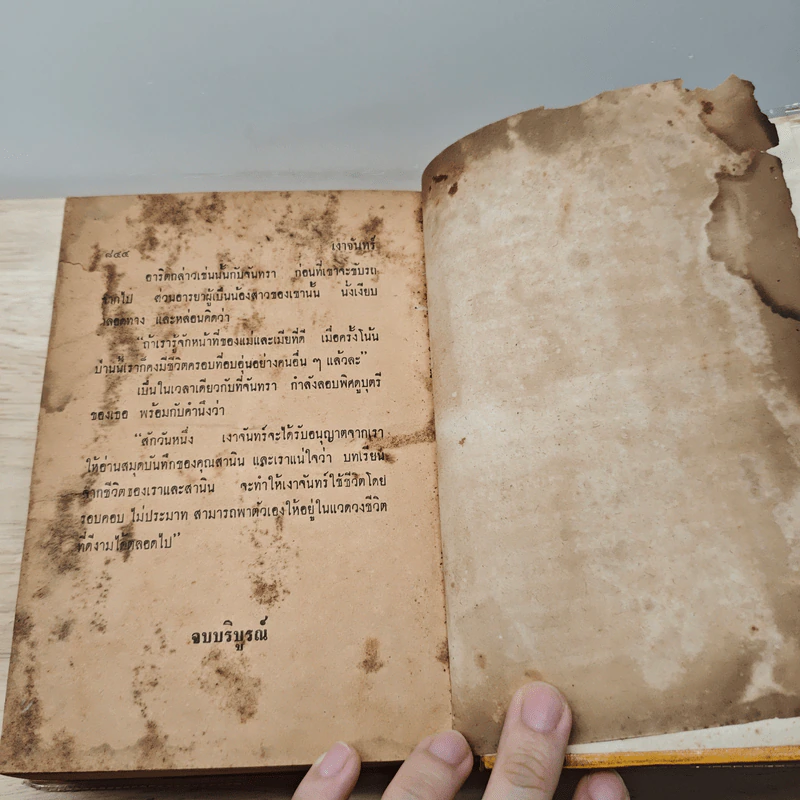 ๘๔๕ เงาจันทร์
อาริตกล่าวเช่นนั้นกับจันทรา ก่อนที่เขาจะขับรถ
จากไป ส่วนอารยาผู้เป็นน้องสาวของเขานั้น นั่งเงียบ
ตลอดทาง และหล่อนคิดว่า
“ถ้าเรารู้จักหน้าที่ของแม่และเมียที่ดี เมื่อครั้งโน้น
ป่านนี้เราก็คงมีชีวิตครอบที่อบอุ่นอย่างคนอื่น ๆ แล้วละ”
เป็นในเวลาเดียวกับที่จันทรา กำลังสอบพิศดูบุตรี
ของเธอ พร้อมกับคำนึงว่า
“สักวันหนึ่ง เงาจันทร์จะได้รับอนุญาตจากเรา
ให้อ่านสมุดบันทึกของคุณสานิน และเราแน่ใจว่า บทเรียน
จากชีวิตของเราและสานิน จะทำให้เงาจันทร์ใช้ชีวิตโดย
รอบคอบ ไม่ประมาท สามารถพาตัวเองให้อยู่ในแวดวงชีวิต
ที่ดีงามได้ตลอดไป”
จบบริบูรณ์